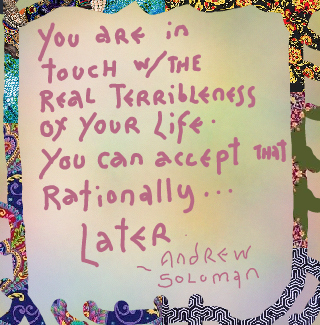 You are in
touch w/the
Real Terribleness
of your Life.
You can accept that
Rationally...
Later
~ Andrew
Soloman